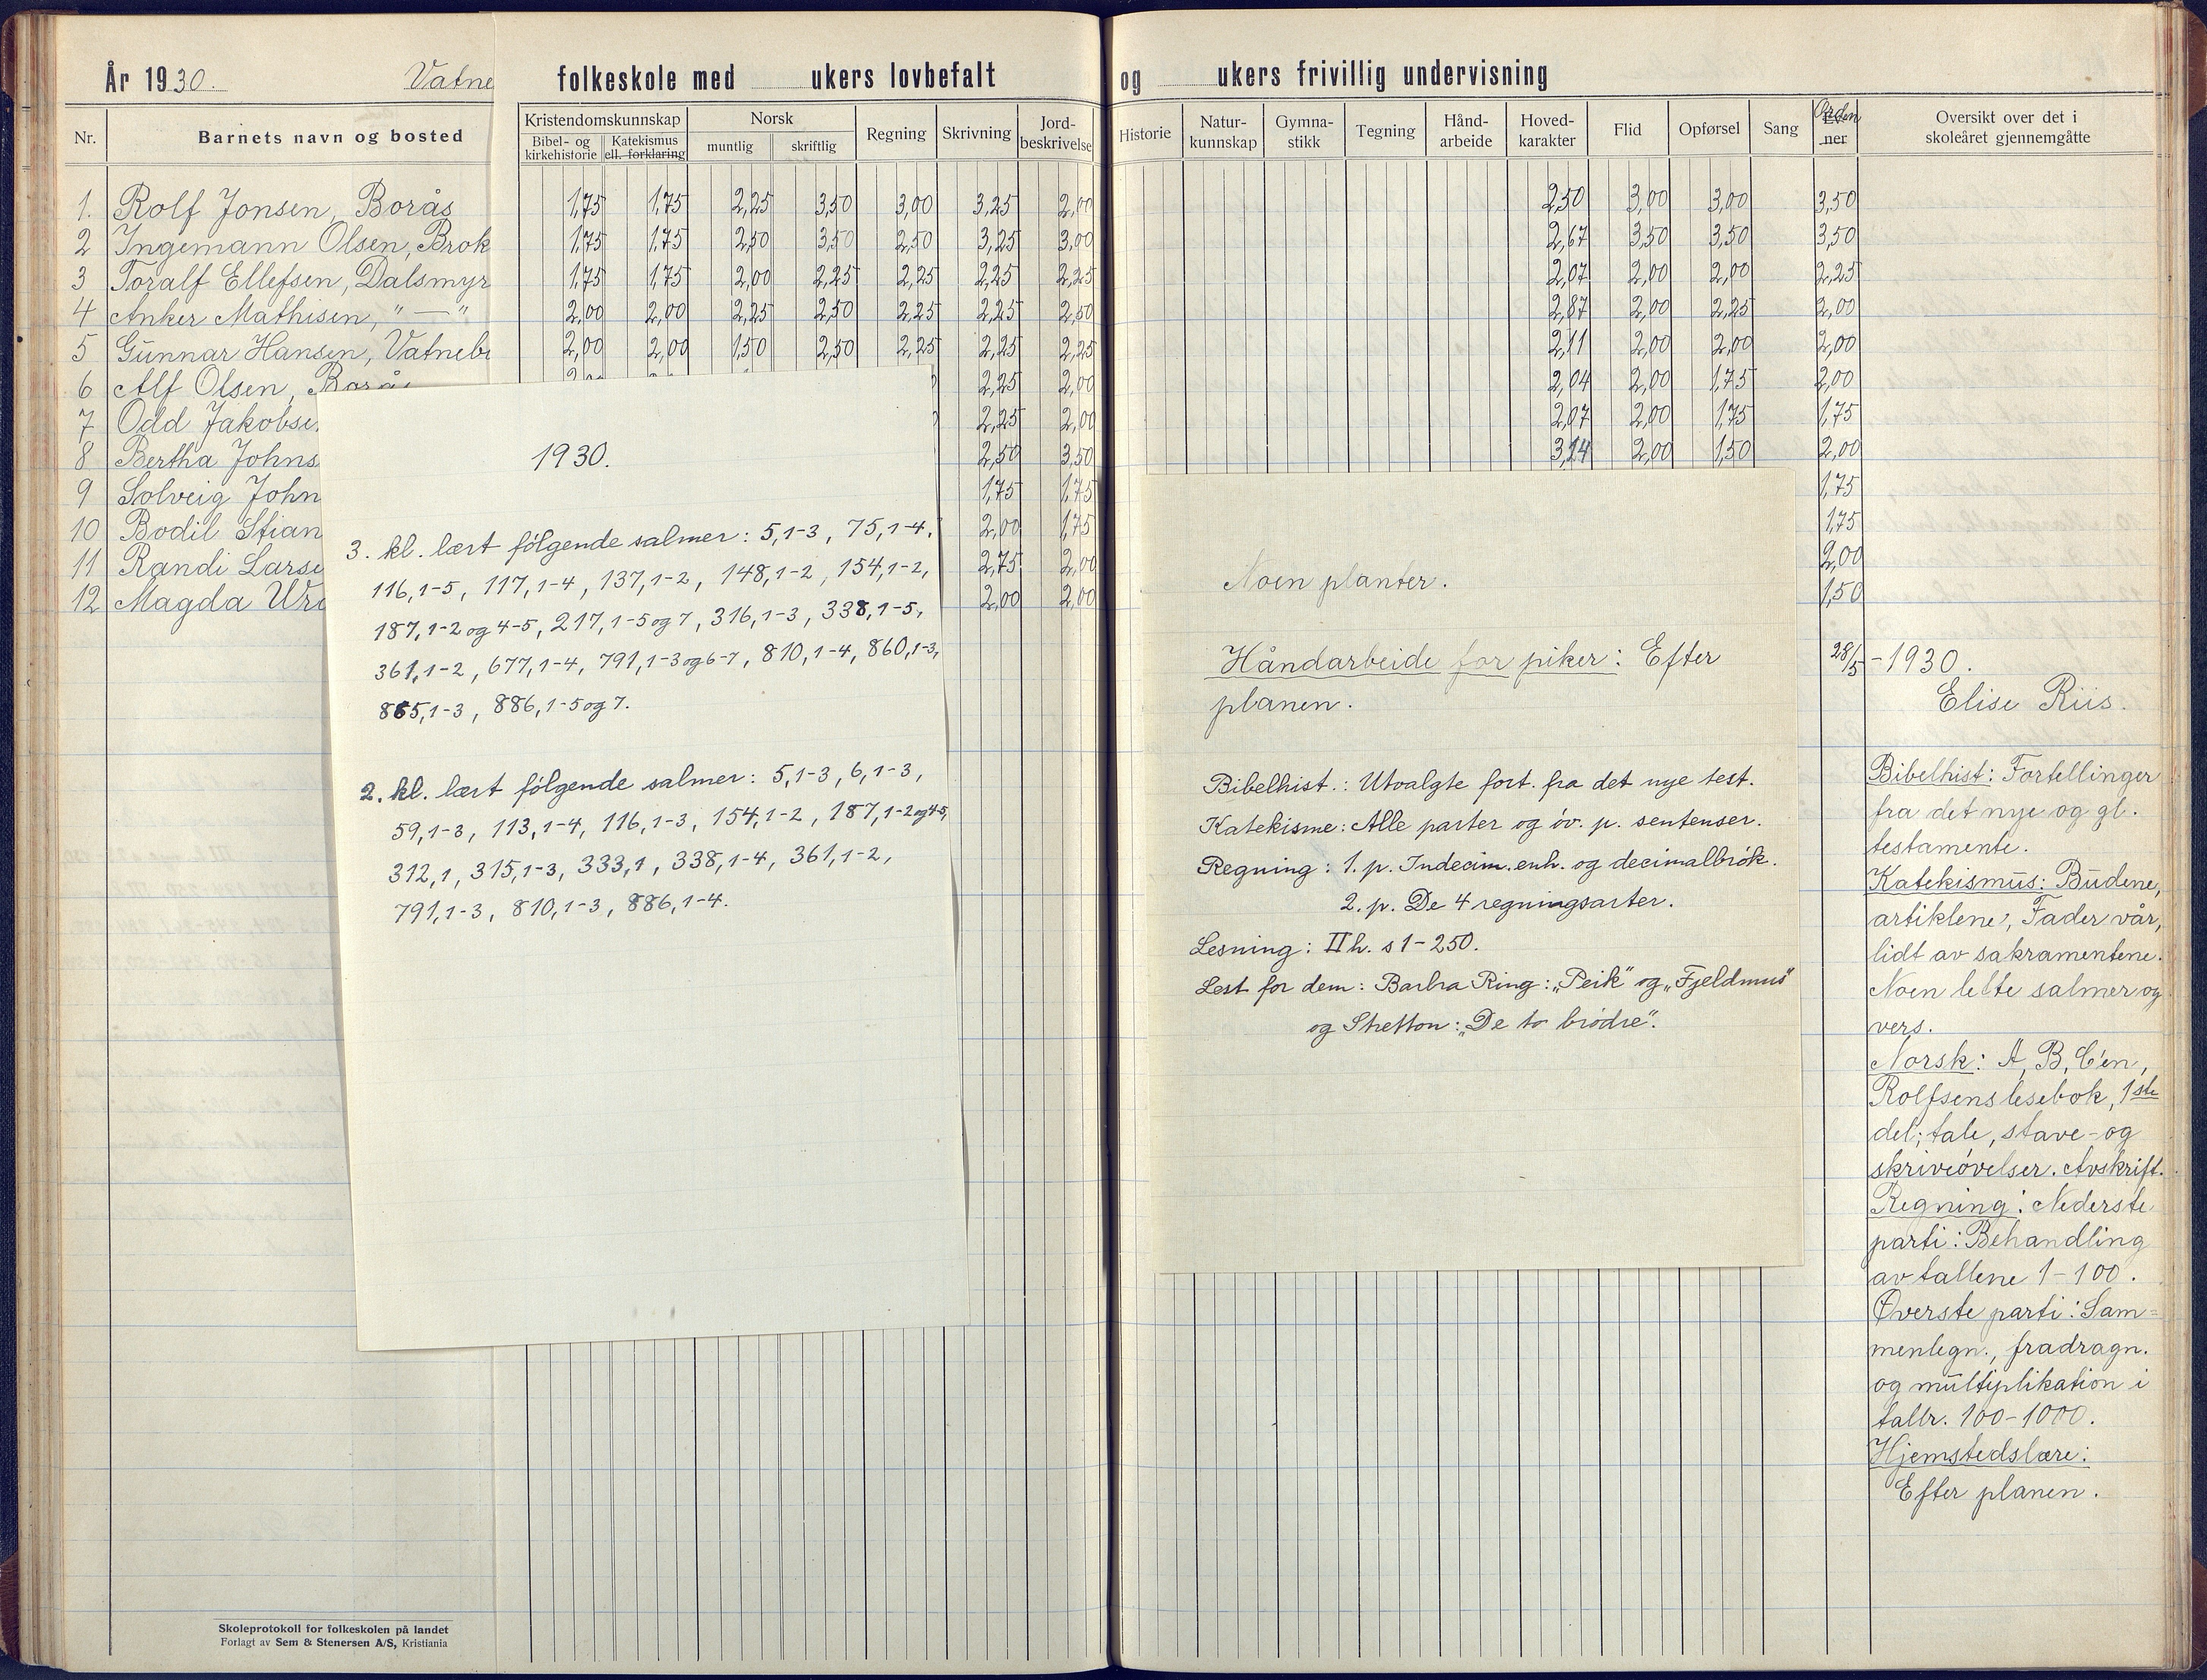 År 1930. Vatne folkeskole med ukers lovbefalt og ukers frivillig undervisning
Nr. Barnets navn og bosted Kristendomskunnskap Bibel- og kirkehistorie Katekismus ell. forklaring Norsk muntlig skriftlig Regning Skrivning Jord-beskrivelse Historie Natur-kunnskap Gymna-stikk Tegning Hånd-arbeide Hoved-karakter Flid Opførsel Sang Orden Oversikt over det i skoleåret gjennemgåtte
1. Rolf Jonsen, Borås 1,75 1,75 2,25 3,50 3,00 3,25 2,00 2,50 3,00 3,00 3,50
2 Ingemann Olsen, Brok 1,75 1,75 2,50 3,50 2,50 3,25 3,00 2,67 3,50 3,50 3,50
3 Toralf Ellefsen, Dalsmyr 1,75 1,75 2,00 2,25 2,25 2,25 2,25 2,07 2,00 2,00 2,25
4 Anker Mathisen, " — " 2,00 2,00 2,25 2,50 2,25 2,25 2,50 2,87 2,00 2,25 2,00
5 Gunnar Hansen, Vatnebu 2,00 2,00 1,50 2,50 2,25 2,25 2,25 2,11 2,00 2,00 2,00
6 Alf Olsen, Borås 2,25 2,00 2,04 2,00 1,75 2,00
7 Odd Jakobse 2,25 2,00 2,07 2,00 1,75 1,75
8 Bertha Johns 2,50 3,50 3,14 2,00 1,50 2,00
9 Solveig John 1,75 1,75 1,75
10 Bodil Stian 2,00 1,75 1,75
11 Randi Larse 2,75 2,00 2,00
12 Magda 2,00 2,00 1,50
1930.
3. kl. lært følgende salmer: 5,1-3, 75,1-4,
116,1-5, 117,1-4, 137,1-2, 148,1-2, 154,1-2,
187,1-2 og 4-5, 217,1-5 og 7, 316,1-3, 338,1-5,
361,1-2, 677,1-4, 791,1-3 og 6-7, 810,1-4, 860,1-3,
865,1-3, 886,1-5 og 7.
2. kl. lært følgende salmer: 5,1-3, 6,1-3,
59,1-3, 113,1-4, 116,1-3, 154,1-2, 187,1-2 og 4-5,
312,1, 315,1-3, 333,1, 338,1-4, 361,1-2,
791,1-3, 810,1-3, 886,1-4.
Noen planter.
Håndarbeide for piker: Efter
planen.
Bibelhist.: Utvalgte fort. fra det nye test.
Katekisme: Alle parter og öv. p. sentenser.
Regning: 1. p. Indecim. enh. og decimalbrök.
2. p. De 4 regningsarter.
Lesning: II h. s 1-250.
Lest for dem: Barbra Ring: „Peik" og „Fjeldmus"
og Stretton: „De to brödre".
28/5 - 1930.
Elise Riis.
Bibelhist: Fortellinger
fra det nye og gl.
testamente.
Katekismus: Budene,
artiklene, Fader vår,
lidt av sakramentene.
Noen lette salmer og
vers.
Norsk: A, B, C'en,
Rolfsens lesebok, 1ste
del; tale, stave- og
skriveövelser. Avskrift.
Regning: Nederste
parti: Behandling
av tallene 1-100.
Øverste parti: Sam=
menlegn., fradragn.
og multiplikation i
tallr. 100-1000.
Hjemstedslære:
Efter planen.
Skoleprotokoll for folkeskolen på landet
Forlagt av Sem & Stenersen A/S, Kristiania